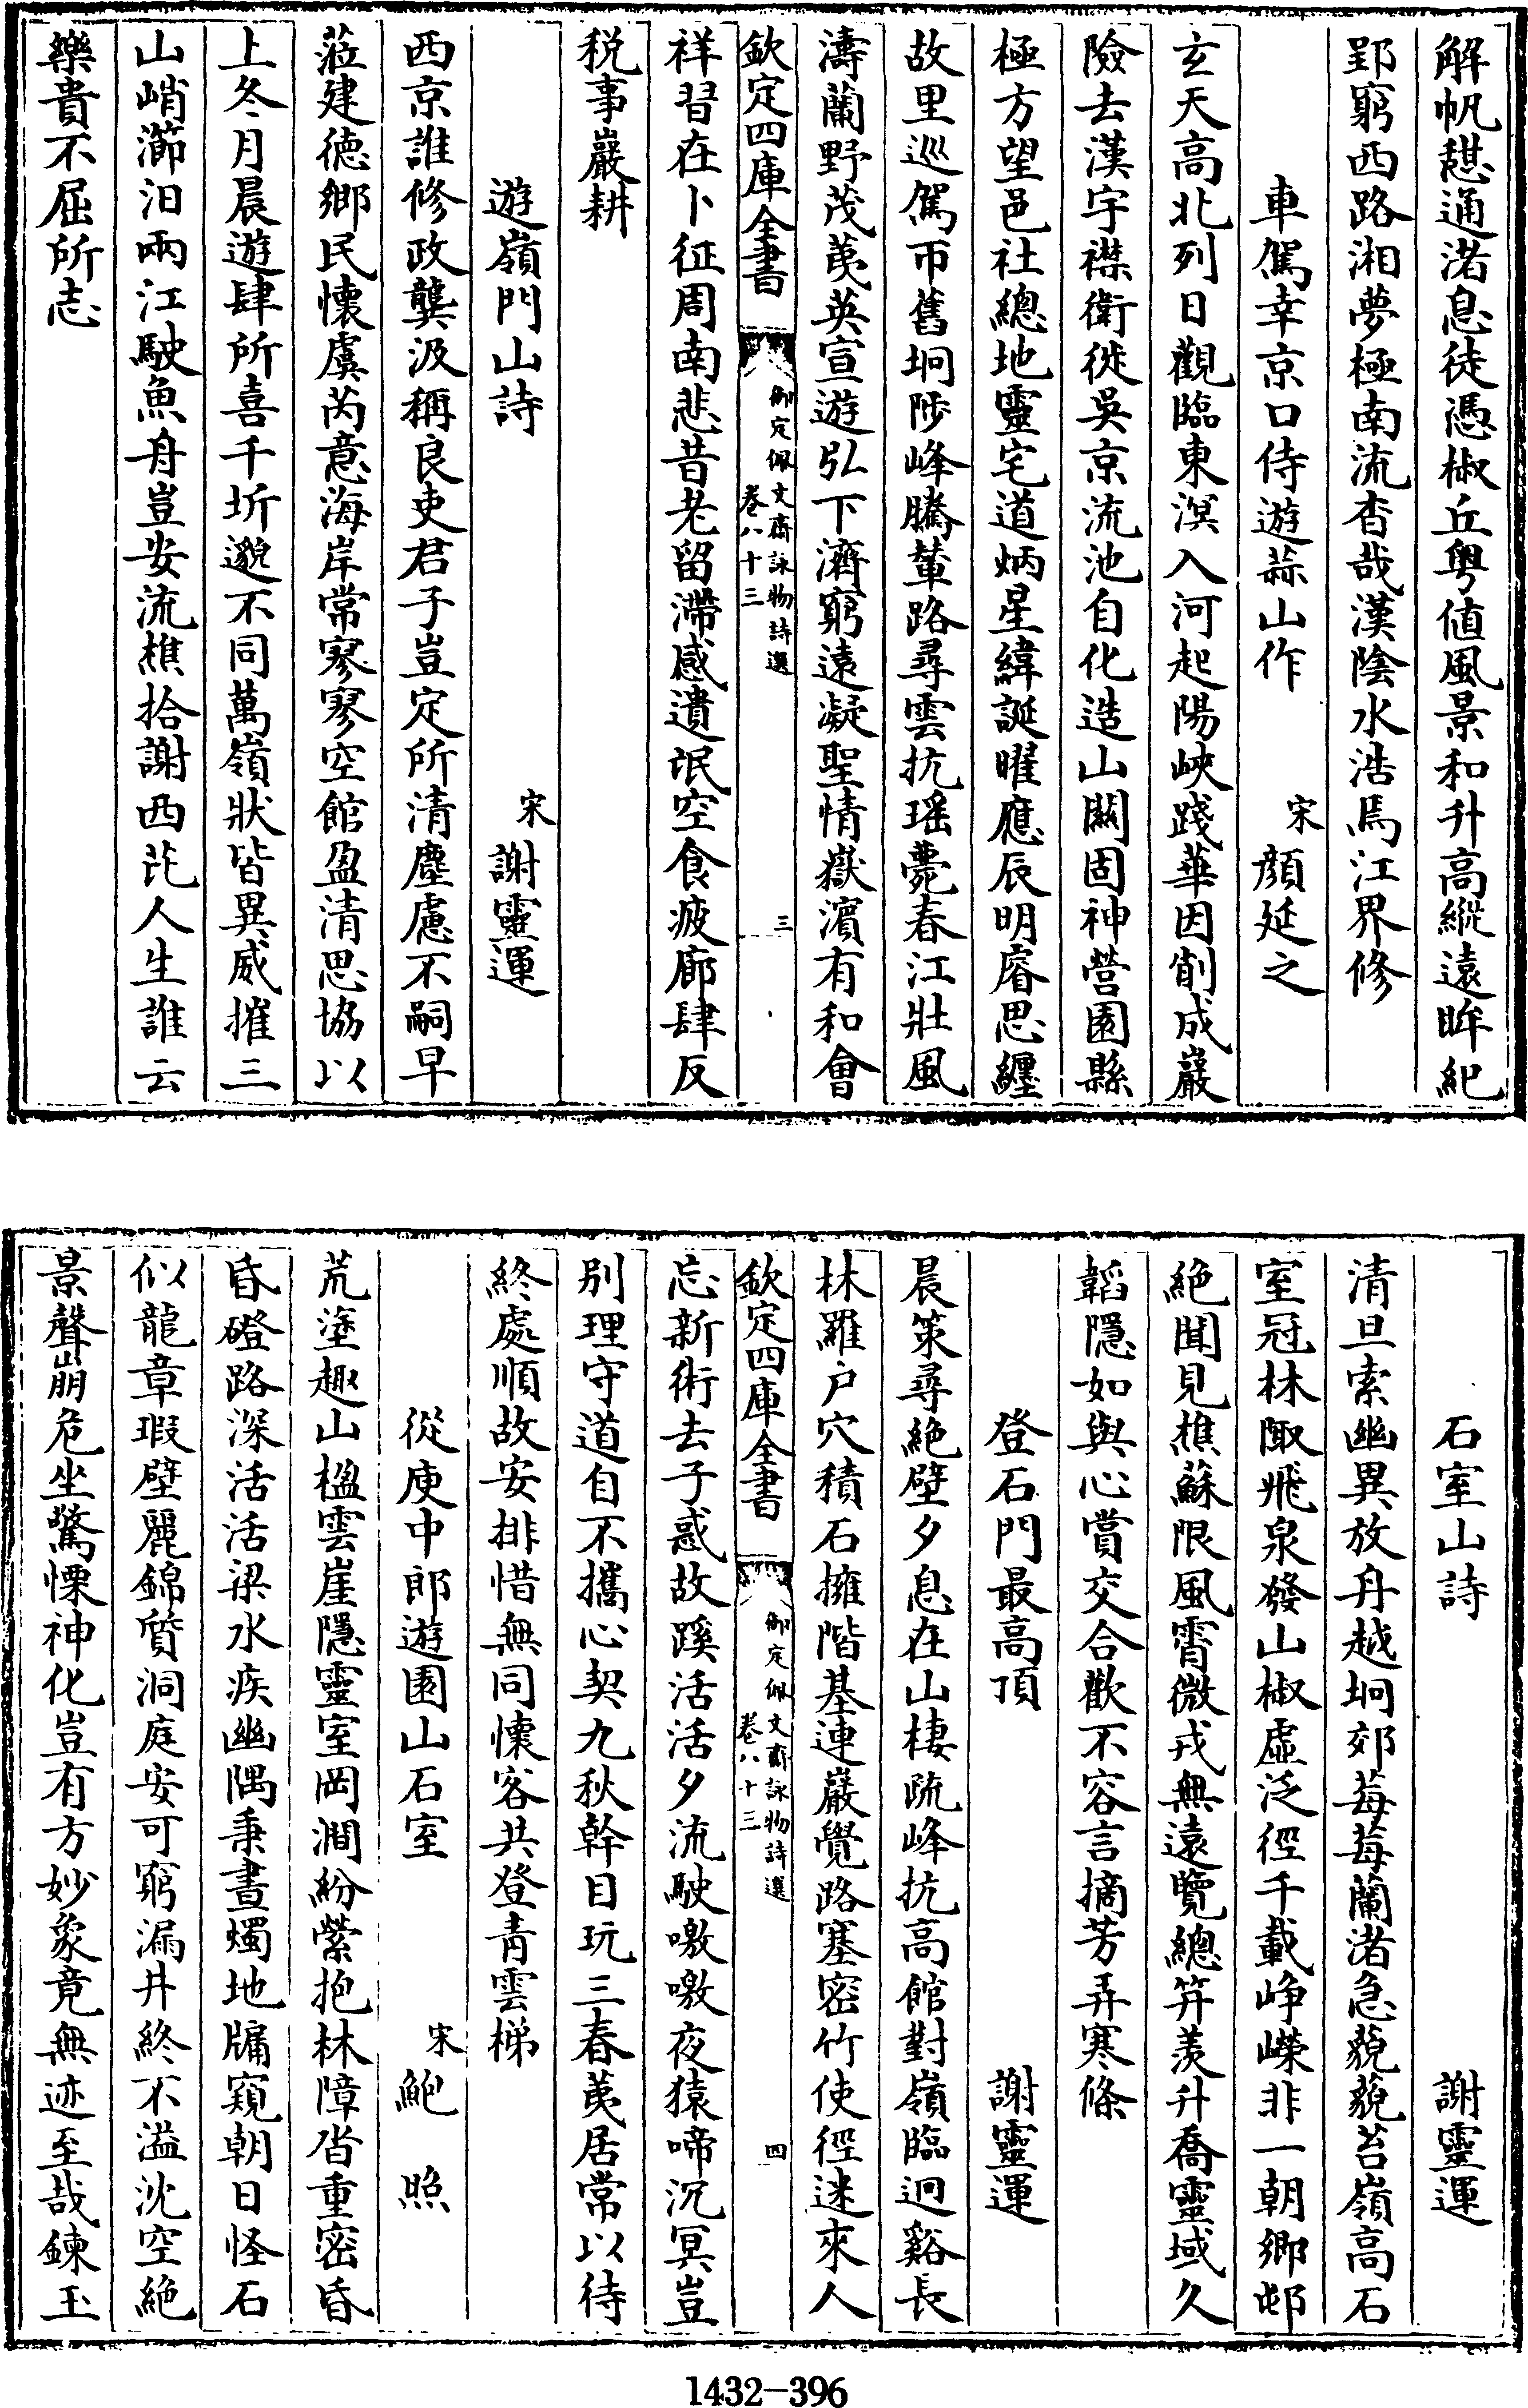 解帆憇通渚息徒憑椒丘粤值風景和升高縱遠眸紀
郢窮西路湘夢極南流杳哉漢陰水浩焉江界修
車駕幸京口侍遊蒜山作　宋顔延之
玄天高北列日觀臨東溟入河起陽峽踐華因削成巖
險去漢宇襟衛徙吳京流池自化造山關固神營園縣
極方望邑社總地靈宅道炳星緯誕曜應辰明睿思纏
故里巡駕帀舊坰陟峰騰輦路尋雲抗瑶甍春江壯風
濤蘭野茂荑英宣遊弘下濟窮遠凝聖情嶽濵有和會
欽定四庫全書　御定佩文齋詠物詩選卷八十三　三
祥習在卜征周南悲昔老留滯感遺氓空食疲廊肆反
税事巖耕
遊嶺門山詩　宋謝靈運
西京誰修政龔汲稱良吏君子豈定所清塵慮不嗣早
蒞建徳鄉民懷虞芮意海岸常寥寥空館盈清思協以
上冬月晨遊肆所喜千圻邈不同萬嶺狀皆異威摧三
山峭瀄汨兩江駛魚舟豈安流樵拾謝西芘人生誰云
樂貴不屈所志
石室山詩　謝靈運
清旦索幽異放舟越坰郊莓莓蘭渚急藐藐苔嶺高石
室冠林陬飛泉發山椒虛泛徑千載崢嶸非一朝鄉邨
絶聞見樵蘇限風霄微戎無遠覽總笄羨升喬靈域久
韜隱如與心賞交合歡不容言摘芳弄寒條
登石門最高頂　謝靈運
晨策尋絶壁夕息在山棲疏峰抗高館對嶺臨迥谿長
林羅户穴積石擁階基連巖覺路塞密竹使徑迷來人
欽定四庫全書　御定佩文齋詠物詩選卷八十三　四
忘新術去子惑故蹊活活夕流駛噭噭夜猿啼沉冥豈
别理守道自不攜心契九秋幹目玩三春荑居常以待
終處順故安排惜無同懷客共登青雲梯
從庾中郎遊園山石室　宋鮑照
荒塗趣山楹雲崖隱靈室岡澗紛縈抱林障沓重密昏
昏磴路深活活梁水疾幽隅秉晝燭地牖窺朝日怪石
似龍章瑕壁麗錦質洞庭安可窮漏井終不溢沈空絶
景聲崩危坐驚慄神化豈有方妙象竟無迹至哉鍊玉
1432-396